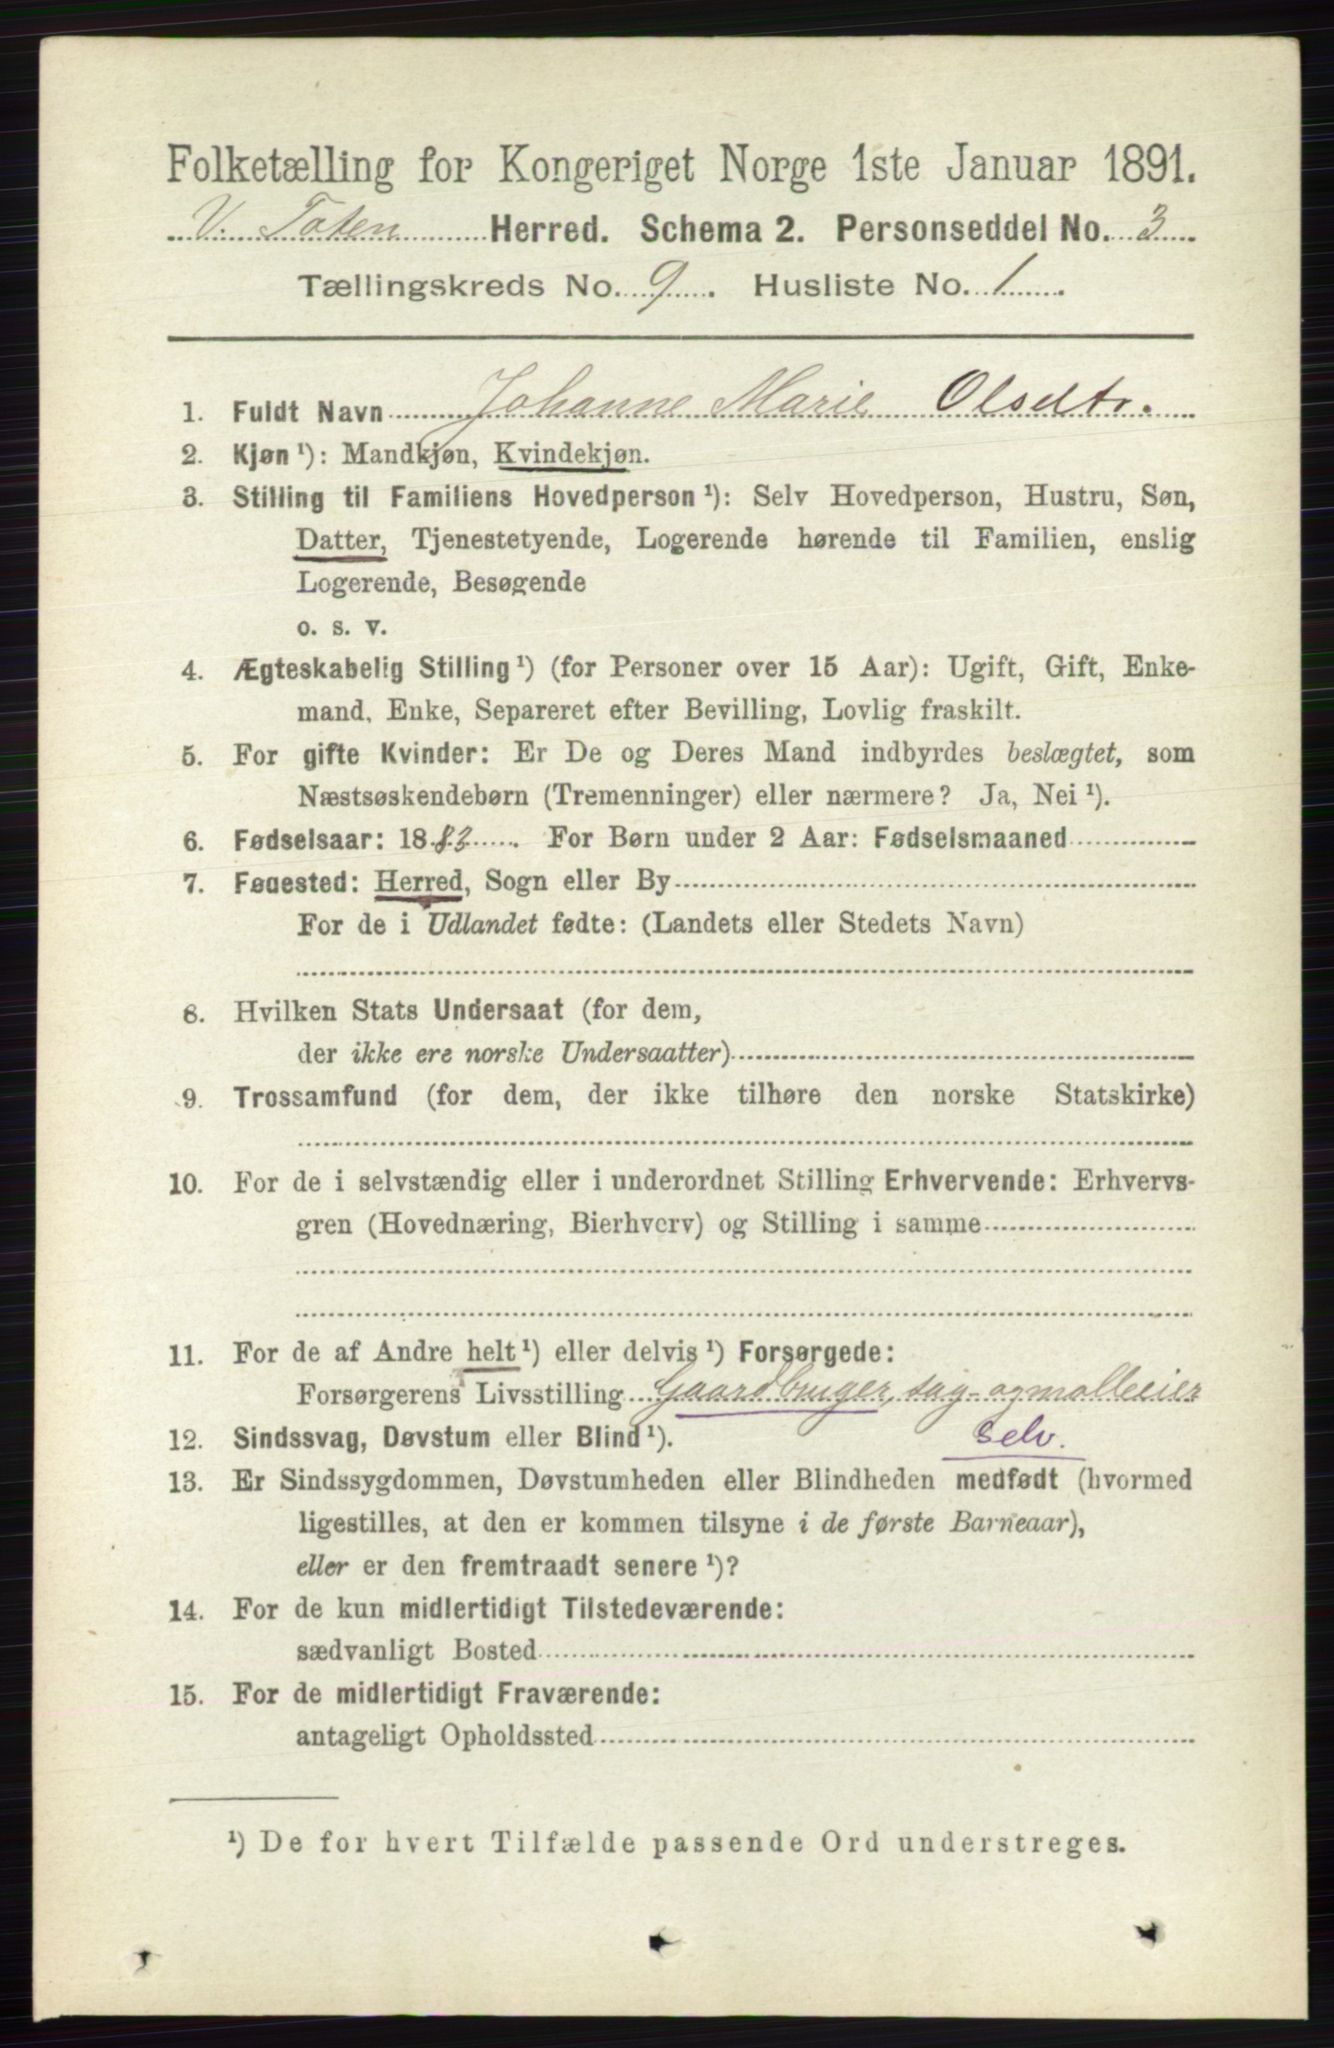 Folketælling for Kongeriget Norge 1ste Januar 1891.
V. Toten Herred. Schema 2. Personseddel No. 3
Tællingskreds No. 9. Husliste No. 1.
1. Fuldt Navn Johanne Marie Olsdtr.
2. Kjøn ¹): Mandkjøn, Kvindekjøn.
3. Stilling til Familiens Hovedperson ¹): Selv Hovedperson, Hustru, Søn,
Datter, Tjenestetyende, Logerende hørende til Familien, enslig
Logerende, Besøgende
o. s. v.
4. Ægteskabelig Stilling ¹) (for Personer over 15 Aar): Ugift, Gift, Enke-
mand, Enke, Separeret efter Bevilling, Lovlig fraskilt.
5. For gifte Kvinder: Er De og Deres Mand indbyrdes beslægtet, som
Næstsøskendebørn (Tremenninger) eller nærmere? Ja, Nei ¹).
6. Fødselsaar: 1883. For Børn under 2 Aar: Fødselsmaaned
7. Fødested: Herred, Sogn eller By
For de i Udlandet fødte: (Landets eller Stedets Navn)
8. Hvilken Stats Undersaat (for dem,
der ikke ere norske Undersaatter)
9. Trossamfund (for dem, der ikke tilhøre den norske Statskirke)
10. For de i selvstændig eller i underordnet Stilling Erhvervende: Erhvervs-
gren (Hovednæring, Bierhverv) og Stilling i samme
11. For de af Andre helt ¹) eller delvis ¹) Forsørgede:
Forsørgerens Livsstilling Gaardbruger, sag- og mølleeier
12. Sindssvag, Døvstum eller Blind ¹). selv.
13. Er Sindssygdommen, Døvstumheden eller Blindheden medfødt (hvormed
ligestilles, at den er kommen tilsyne i de første Barneaar),
eller er den fremtraadt senere ¹)?
14. For de kun midlertidigt Tilstedeværende:
sædvanligt Bosted
15. For de midlertidigt Fraværende:
antageligt Opholdssted
¹) De for hvert Tilfælde passende Ord understreges.